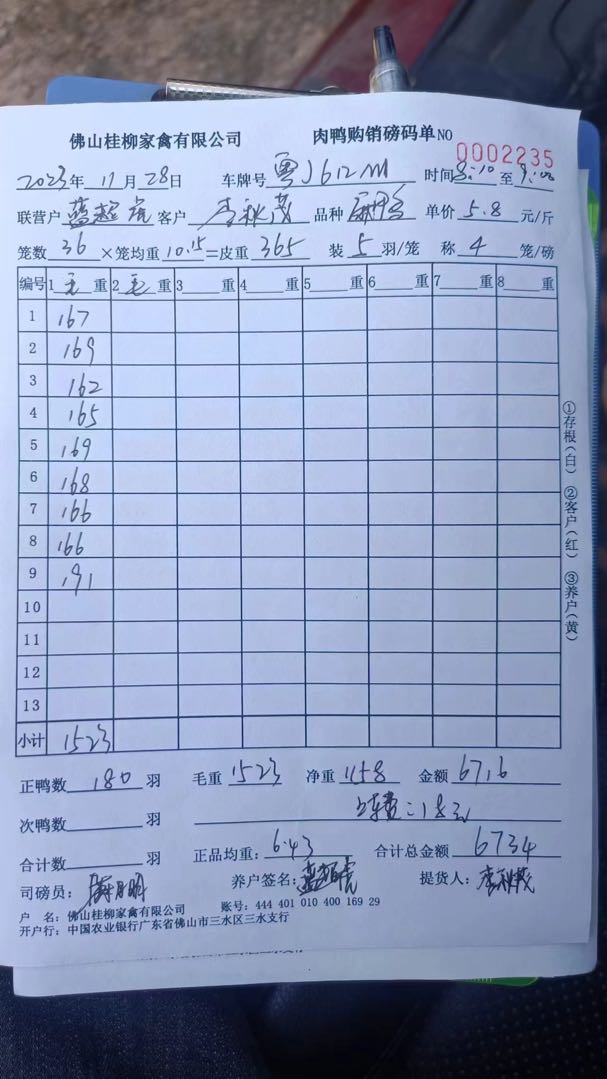 佛山桂柳家禽有限公司 肉鸭购销磅码单 NO 0002235
2023年11月28日 车牌号 粤J612M 时间8:10至9:00
联营户 蓝超虎 客户 李秋茂 品种 麻鸭 单价 5.8 元/斤
笼数 36 ×笼均重 10.15 =皮重 365 装 5 羽/笼 称 4 笼/磅
编号 1 毛 重 2 毛 重 3 重 4 重 5 重 6 重 7 重 8 重
1 167
2 169
3 162
4 165
5 169
6 168
7 166
8 166
9 191
10
11
12
13
小计 1523
①存根(白) ②客户(红) ③养户(黄)
正鸭数 180 羽 毛重 1523 净重 1158 金额 6716
次鸭数 羽 上车费:18元
合计数 羽 正品均重: 6.43 合计总金额 6734
司磅员: 养户签名: 蓝超虎 提货人: 李秋茂
户 名: 佛山桂柳家禽有限公司 账号: 444 401 010 400 169 29
开户行: 中国农业银行广东省佛山市三水区三水支行